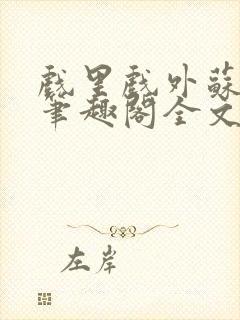 戲里戲外蘇
筆趣閣全文
左岸